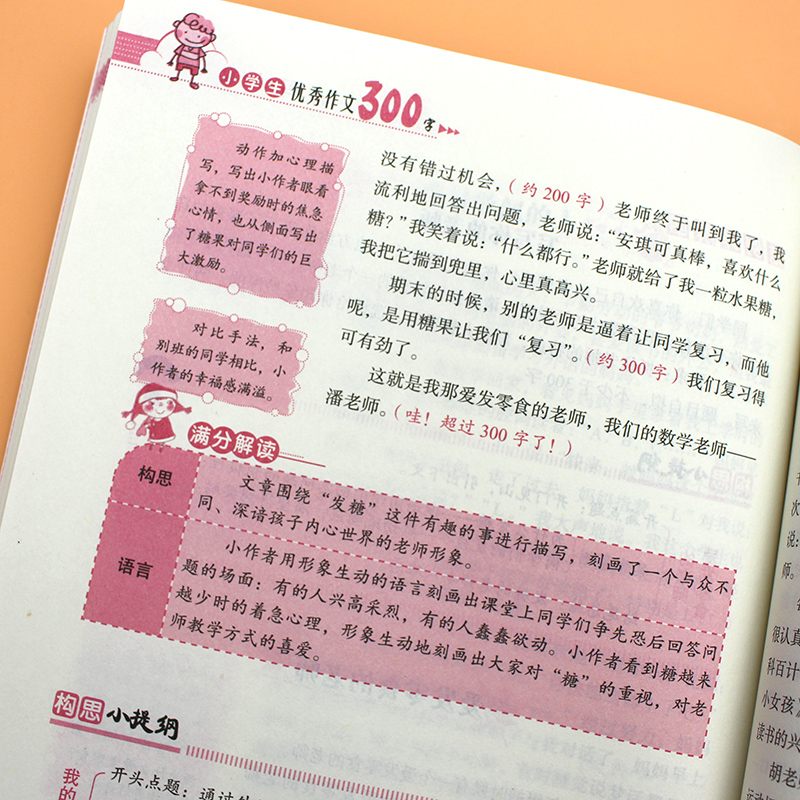 小学生优秀作文300字
动作加心理描
写，写出小作者眼看
拿不到奖励时的焦急
心情，也从侧面写出
了糖果对同学们的巨
大激励。
对比手法，和
别班的同学相比，小
作者的幸福感满溢。
没有错过机会，（约200字）老师终于叫到我了，我
流利地回答出问题，老师说：“安琪可真棒，喜欢什么
糖？”我笑着说：“什么都行。”老师就给了我一粒水果糖，
我把它揣到兜里，心里真高兴。
期末的时候，别的老师是逼着让同学复习，而他
呢，是用糖果让我们“复习”。（约300字）我们复习得
可有劲了。
这就是我那爱发零食的老师，我们的数学老师——
潘老师。（哇！超过300字了！）
满分解读
构思
文章围绕“发糖”这件有趣的事进行描写，刻画了一个与众不
同、深谙孩子内心世界的老师形象。
语言
小作者用形象生动的语言刻画出课堂上同学们争先恐后回答问
题的场面：有的人兴高采烈，有的人蠢蠢欲动。小作者看到糖越来
越少时的着急心理，形象生动地刻画出大家对“糖”的重视，对老
师教学方式的喜爱。
构思小提纲
我的
开头点题：通过
次
说：
师。
很认真
科百计
小女孩
读书的兴
胡老